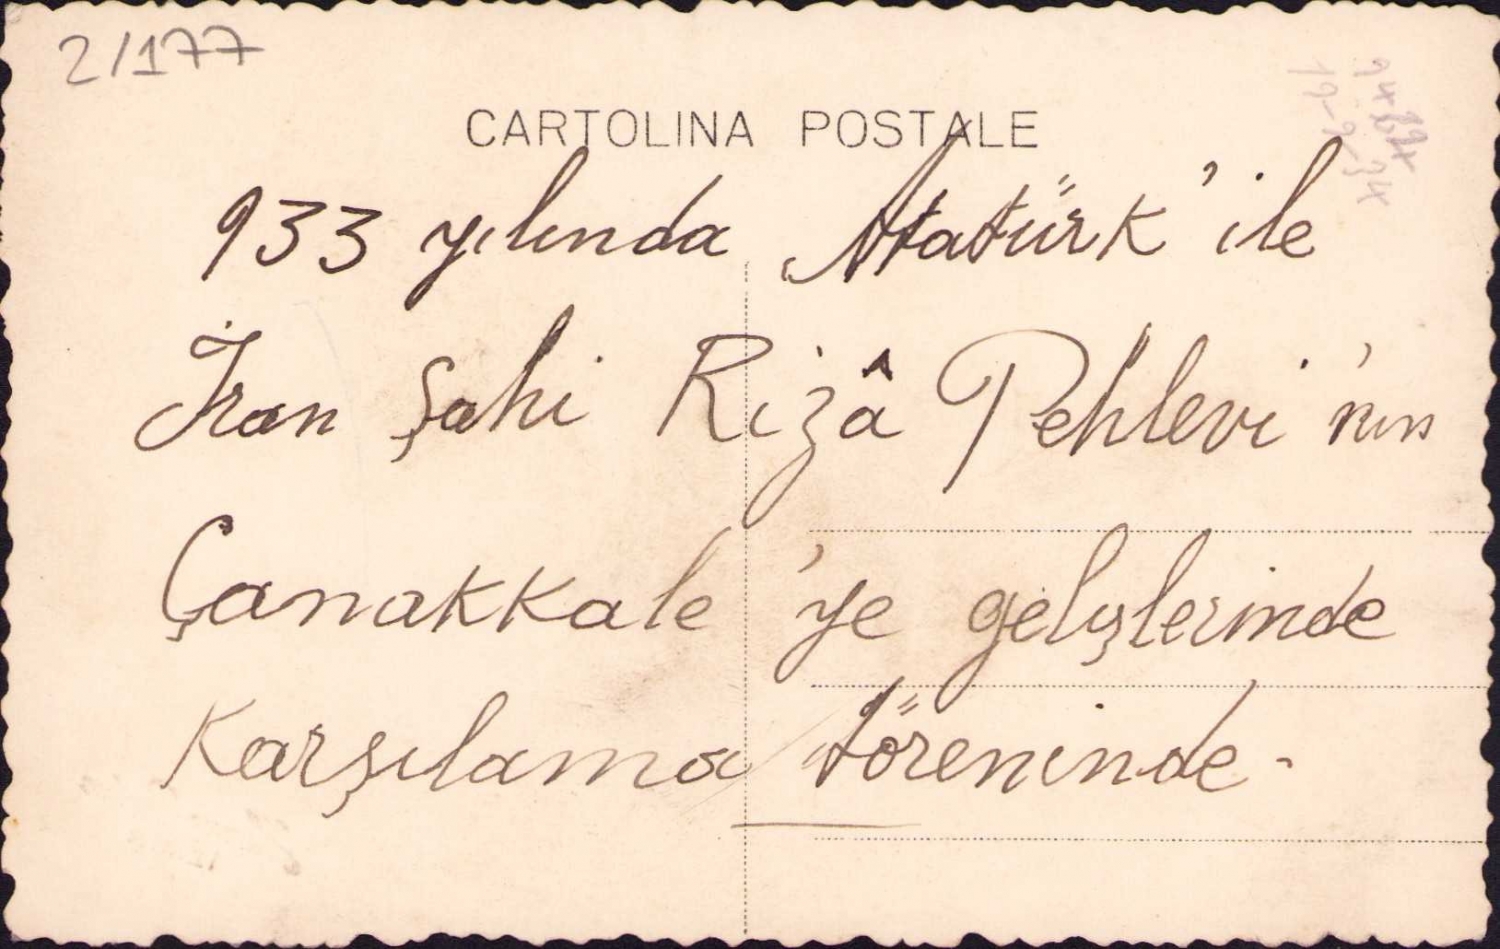 2/177
CARTOLINA POSTALE
933 yılında Atatürk' ile
İran Şahi Rizâ Pehlevi'nın
Çanakkale'ye gelışlerinde
Karşılama töreninde-